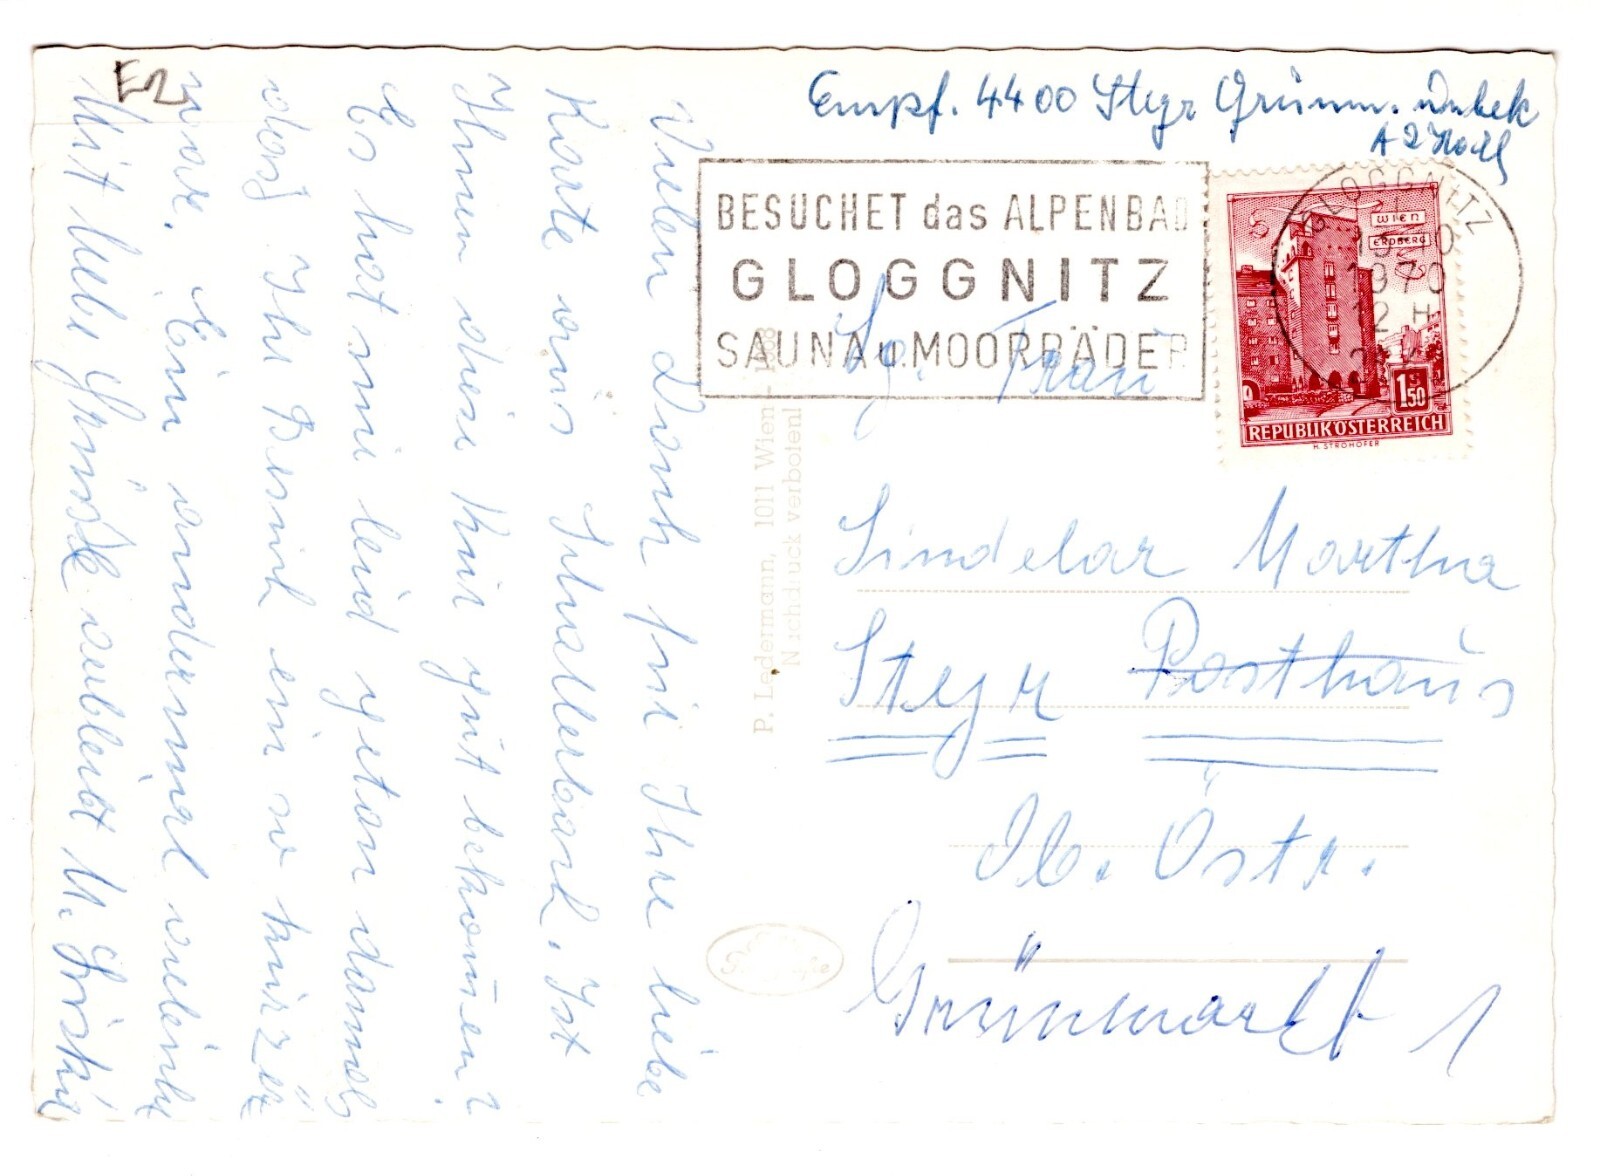 E2
Vielen Dank für Ihre liebe
Karte aus Schallerbach. Ist
Ihnen diese Kur gut bekommen?
Es hat mir leid getan damals
das Ihr Besuch ein so kurzer
war. Ein andermal vielleicht
Mit liebe Grüsse verbleibt M.
P. Ledermann, 1011 Wien - 1968
Nachdruck verboten!
Empf. 4400 Steyr Grünm. unbek
BESUCHET das ALPENBAD
GLOGGNITZ
SAUNA u. MOORBÄDER
GLOGGNITZ
1970
12 H
WIEN
ERDBERG
S
1 50
REPUBLIK ÖSTERREICH
H. STROHOFER
Sg. Frau
Sindelar Martha
Steyr Posthaus
Ob. Östr.
Grünmarkt 1